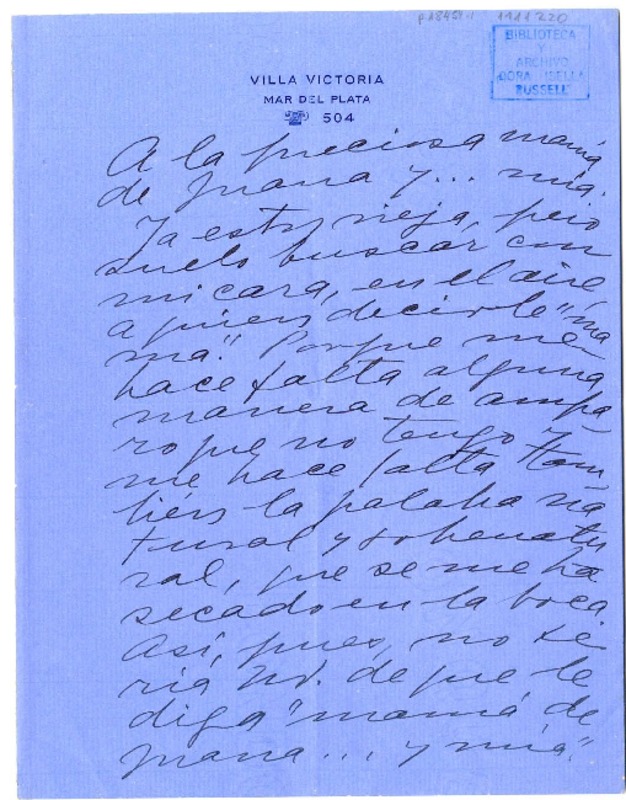 p18451-1 1111220
BIBLIOTECA
Y
ARCHIVO
DORA ISELLA
RUSSELL
VILLA VICTORIA
MAR DEL PLATA
504
A la preciosa mamá
de Juana y... mía.
Ya estoy vieja, pero
suelo buscar con
mi cara, en el aire
a quien decirle "ma
má." Porque me
hace falta alguna
manera de ampa
ro que no tengo y
me hace falta tam
bién la palabra na
tural y sobrenatu
ral, que se me ha
secado en la boca
Así, pues, no se
ría Ud. de que le
diga "mamá de
Juana... y mía".